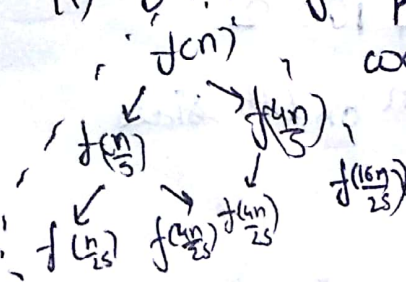 f(n)
f(n/5) f(4n/5)
f(n/25) f(4n/25) f(4n/25) f(16n/25)